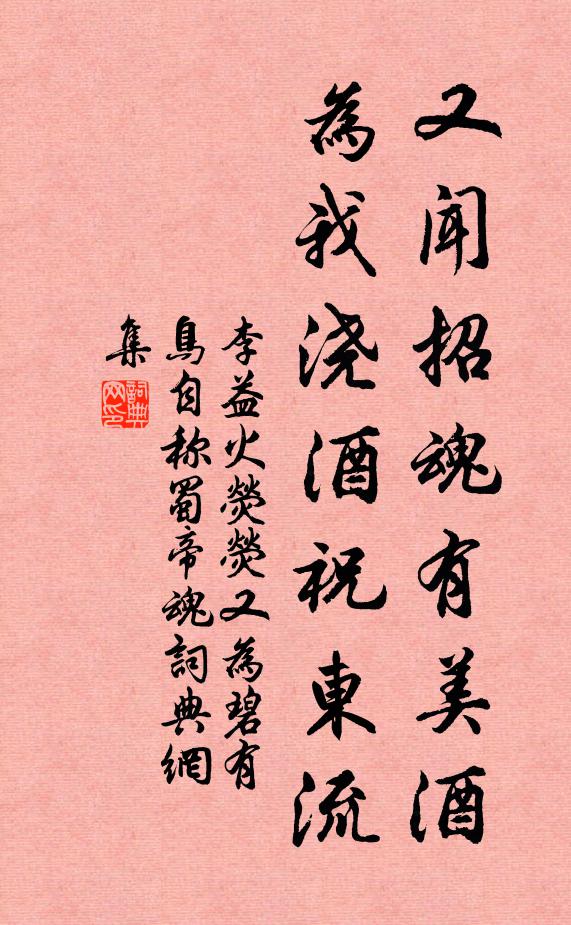 又聞招魂有美酒
為我浇酒祝東流
李益火熒熒又為碧有
鳥自称蜀帝魂詞典網
集
詞典
网印